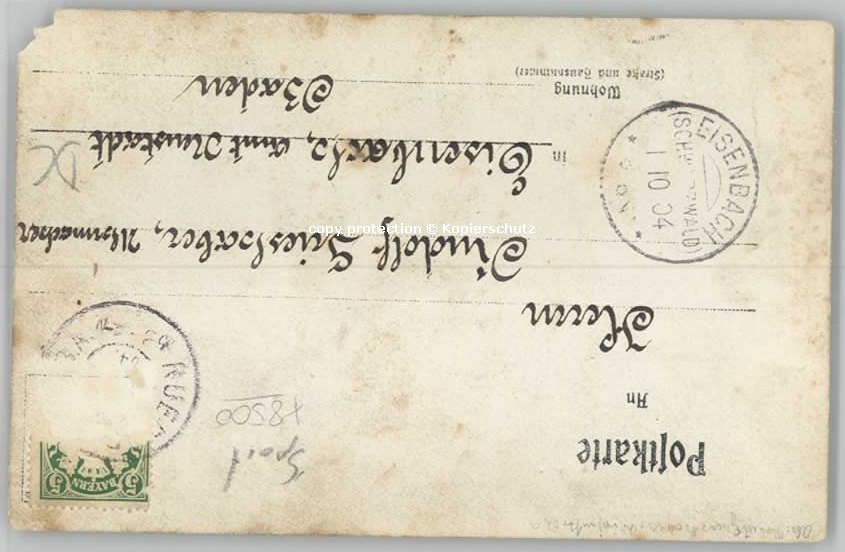 Postkarte
An
Herrn
Rudolf Grieshaber, Uhrmacher
in Eisenbach, Amt Neustadt
Baden
Wohnung
(Straße und Hausnummer)
EISENBACH
(SCHWARZWALD)
1 10 04
5
BAYERN
5
Spoit
+8500
DC
copy protection © Kopierschutz